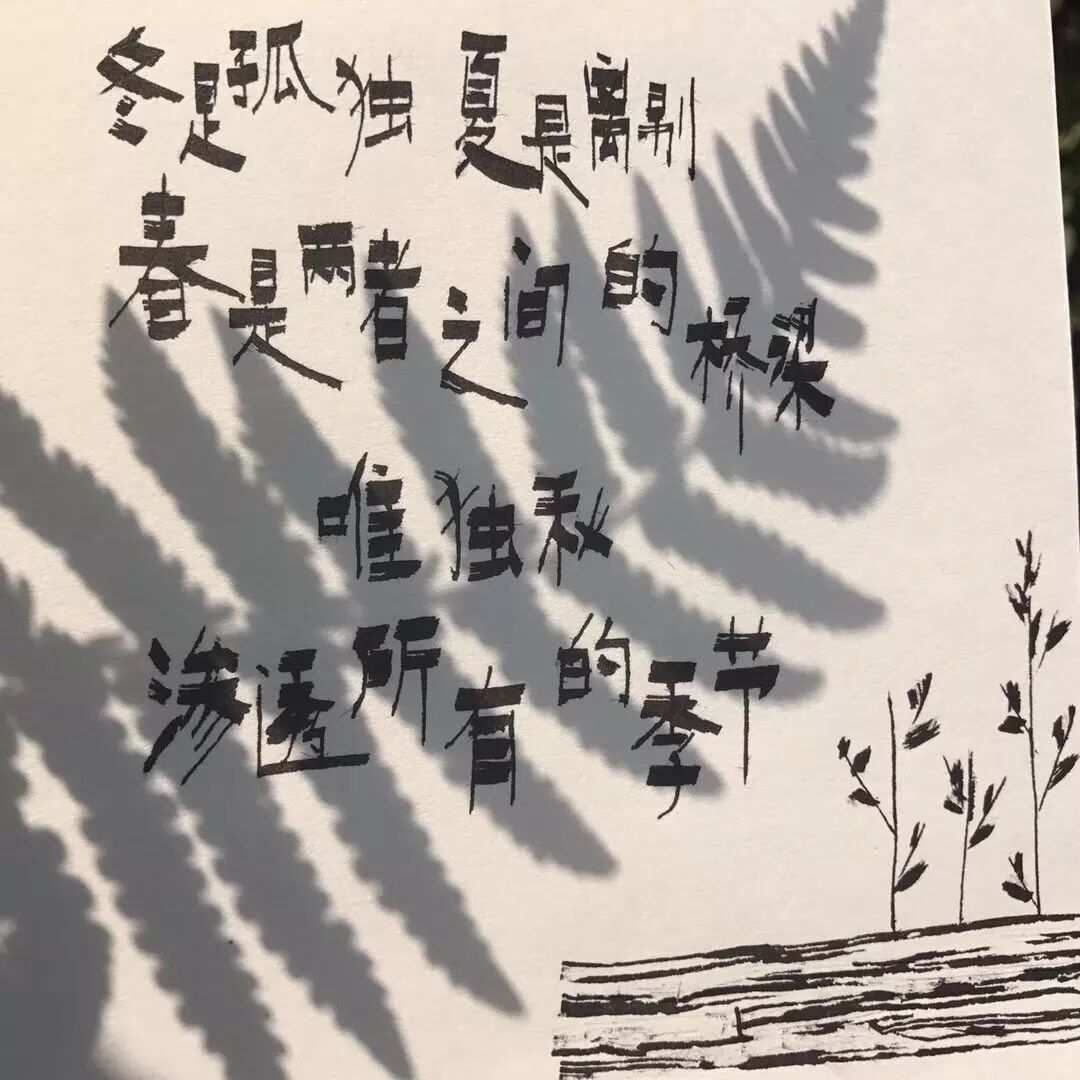 冬是孤独 夏是离别
春是两者之间的桥梁
唯独秋
渗透所有的季节